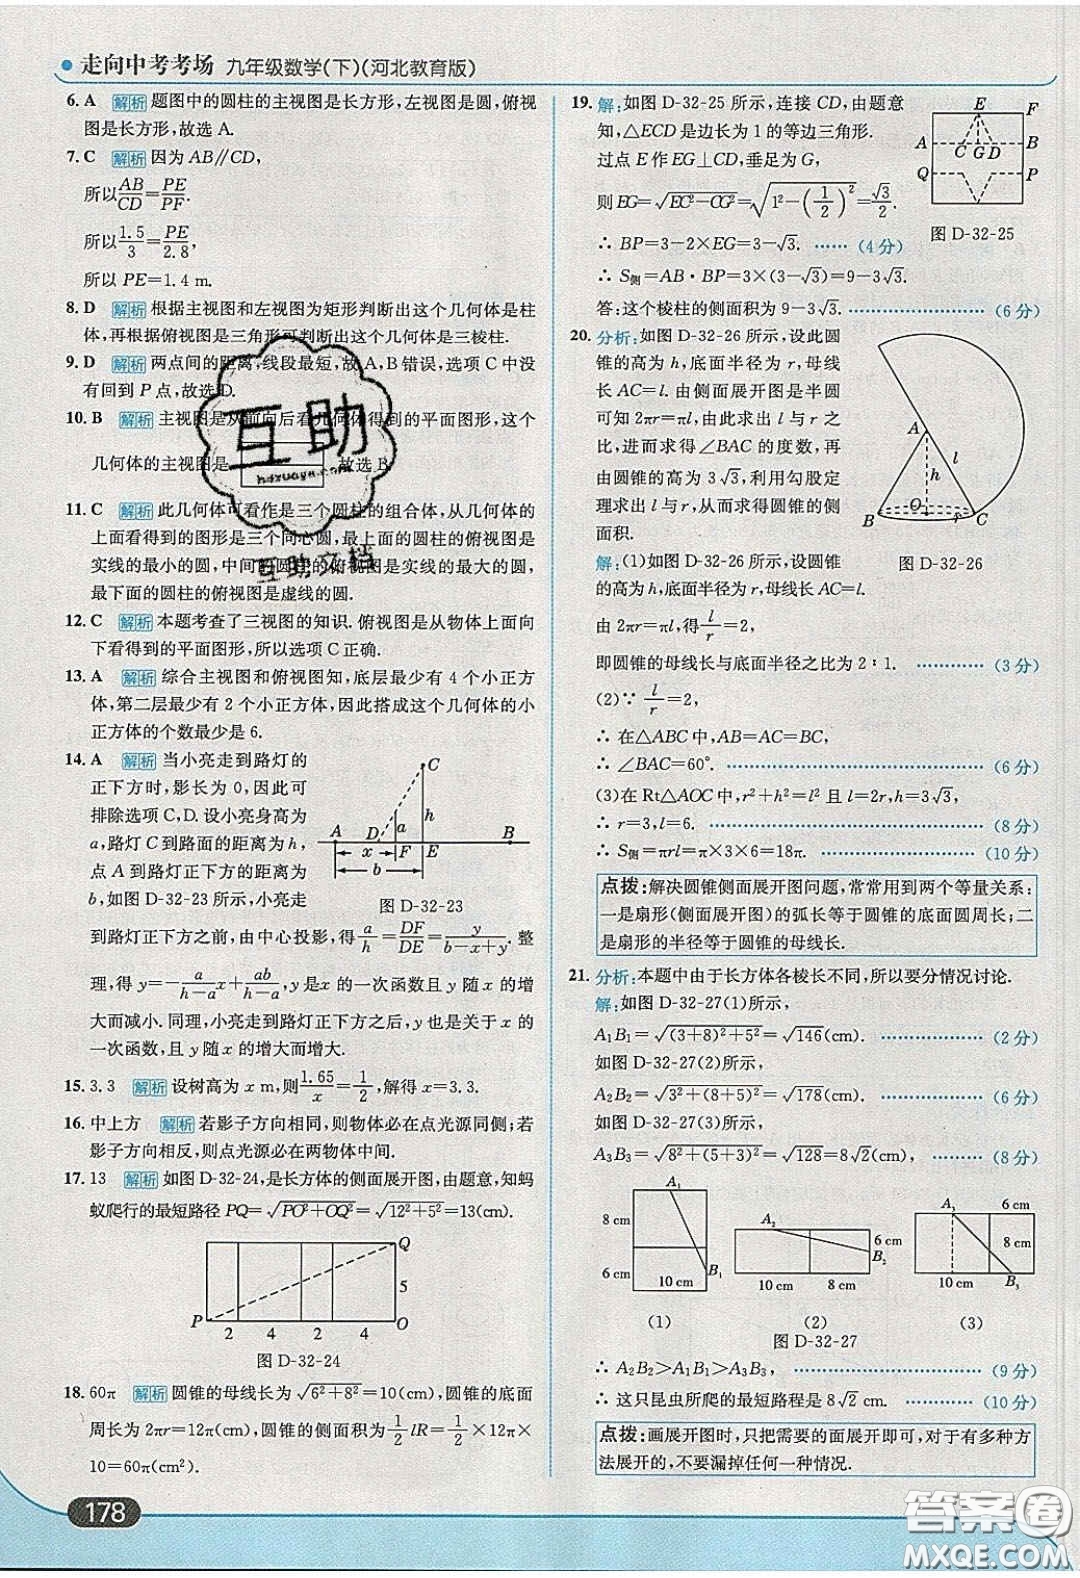 走向中考考场 九年级数学(下)(河北教育版)
6. A 解析 题图中的圆柱的主视图是长方形,左视图是圆,俯视
图是长方形,故选 A.
7. C 解析 因为 AB∥CD,
所以 AB/CD=PE/PF.
所以 1.5/3=PE/2.8,
所以 PE=1.4 m.
8. D 解析 根据主视图和左视图为矩形判断出这个几何体是柱
体,再根据俯视图是三角形可判断出这个几何体是三棱柱.
9. D 解析 两点间的距离,线段最短,故 A,B 错误,选项 C 中没
有回到 P 点,故选 D.
10. B 解析 主视图是从前向后看几何体得到的平面图形,这个
几何体的主视图是 ,故选 B.
11. C 解析 此几何体可看作是三个圆柱的组合体,从几何体的
上面看得到的图形是三个同心圆,最上面的圆柱的俯视图是
实线的最小的圆,中间的圆柱的俯视图是实线的最大的圆,
最下面的圆柱的俯视图是虚线的圆.
12. C 解析 本题考查了三视图的知识.俯视图是从物体上面向
下看得到的平面图形,所以选项 C 正确.
13. A 解析 综合主视图和俯视图知,底层最少有 4 个小正方
体,第二层最少有 2 个小正方体,因此搭成这个几何体的小
正方体的个数最少是 6.
14. A 解析 当小亮走到路灯的
正下方时,影长为 0,因此可
排除选项 C,D.设小亮身高为
a,路灯 C 到路面的距离为 h,
点 A 到路灯正下方的距离为
b,如图 D-32-23 所示,小亮走
C
h
a
A D B
x F E
b
图 D-32-23
到路灯正下方之前,由中心投影,得 a/h=DF/DE=y/(b-x+y).整
理,得 y=-a/(h-a)x+ab/(h-a),y 是 x 的一次函数且 y 随 x 的增
大而减小.同理,小亮走到路灯正下方之后,y 也是关于 x 的
一次函数,且 y 随 x 的增大而增大.
15. 3.3 解析 设树高为 x m,则 1.65/x=1/2,解得 x=3.3.
16. 中上方 解析 若影子方向相同,则物体必在点光源同侧;若
影子方向相反,则点光源必在两物体中间.
17. 13 解析 如图 D-32-24,是长方体的侧面展开图,由题意,知蚂
蚁爬行的最短路径 PQ=√(PO²+OQ²)=√(12²+5²)=13(cm).
Q
5
P O
2 4 2 4
图 D-32-24
18. 60π 解析 圆锥的母线长为√(6²+8²)=10(cm),圆锥的底面
周长为 2πr=12π(cm),圆锥的侧面积为 1/2 lR=1/2×12π×
10=60π(cm²).
178
19. 解:如图 D-32-25 所示,连接 CD,由题意
知,△ECD 是边长为 1 的等边三角形.
过点 E 作 EG⊥CD,垂足为 G,
则 EG=√(EC²-CG²)=√(1²-(1/2)²)=√3/2.
∴ BP=3-2×EG=3-√3. ……(4 分)
∴ S侧=AB·BP=3×(3-√3)=9-3√3.
答:这个棱柱的侧面积为 9-3√3. ……(6 分)
E F
A C G D B
Q P
图 D-32-25
20. 分析:如图 D-32-26 所示,设此圆
锥的高为 h,底面半径为 r,母线
长 AC=l.由侧面展开图是半圆
可知 2πr=πl,由此求出 l 与 r 之
比,进而求得∠BAC 的度数,再
由圆锥的高为 3√3,利用勾股定
理求出 l 与 r,从而求得圆锥的侧
面积.
解:(1)如图 D-32-26 所示,设圆锥
的高为 h,底面半径为 r,母线长 AC=l.
A
l
h
O
B r C
图 D-32-26
由 2πr=πl,得 l/r=2,
即圆锥的母线长与底面半径之比为 2∶1. ……(3 分)
(2)∵ l/r=2,
∴ 在△ABC 中,AB=AC=BC,
∴ ∠BAC=60°. ……(6 分)
(3)在 Rt△AOC 中,r²+h²=l² 且 l=2r,h=3√3,
∴ r=3,l=6. ……(8 分)
∴ S侧=πrl=π×3×6=18π. ……(10 分)
点拨:解决圆锥侧面展开图问题,常常用到两个等量关系:
一是扇形(侧面展开图)的弧长等于圆锥的底面圆周长;二
是扇形的半径等于圆锥的母线长.
21. 分析:本题中由于长方体各棱长不同,所以要分情况讨论.
解:如图 D-32-27(1)所示,
A₁B₁=√((3+8)²+5²)=√146(cm). ……(2 分)
如图 D-32-27(2)所示,
A₂B₂=√(3²+(8+5)²)=√178(cm). ……(6 分)
如图 D-32-27(3)所示,
A₃B₃=√(8²+(5+3)²)=√128=8√2(cm), ……(8 分)
A₁
8 cm
6 cm 10 cm B₁
(1)
A₂ 6 cm
B₂
10 cm 8 cm
(2)
A₃ 6 cm
8 cm
10 cm B₃
(3)
图 D-32-27
∴ A₂B₂>A₁B₁>A₃B₃, ……(9 分)
∴ 这只昆虫所爬的最短路程是 8√2 cm. ……(10 分)
点拨:画展开图时,只把需要的面展开即可,对于有多种方
法展开的,不要漏掉任何一种情况.
互助
hdzuoye.com
互助文档
答案圈
MXQE.COM